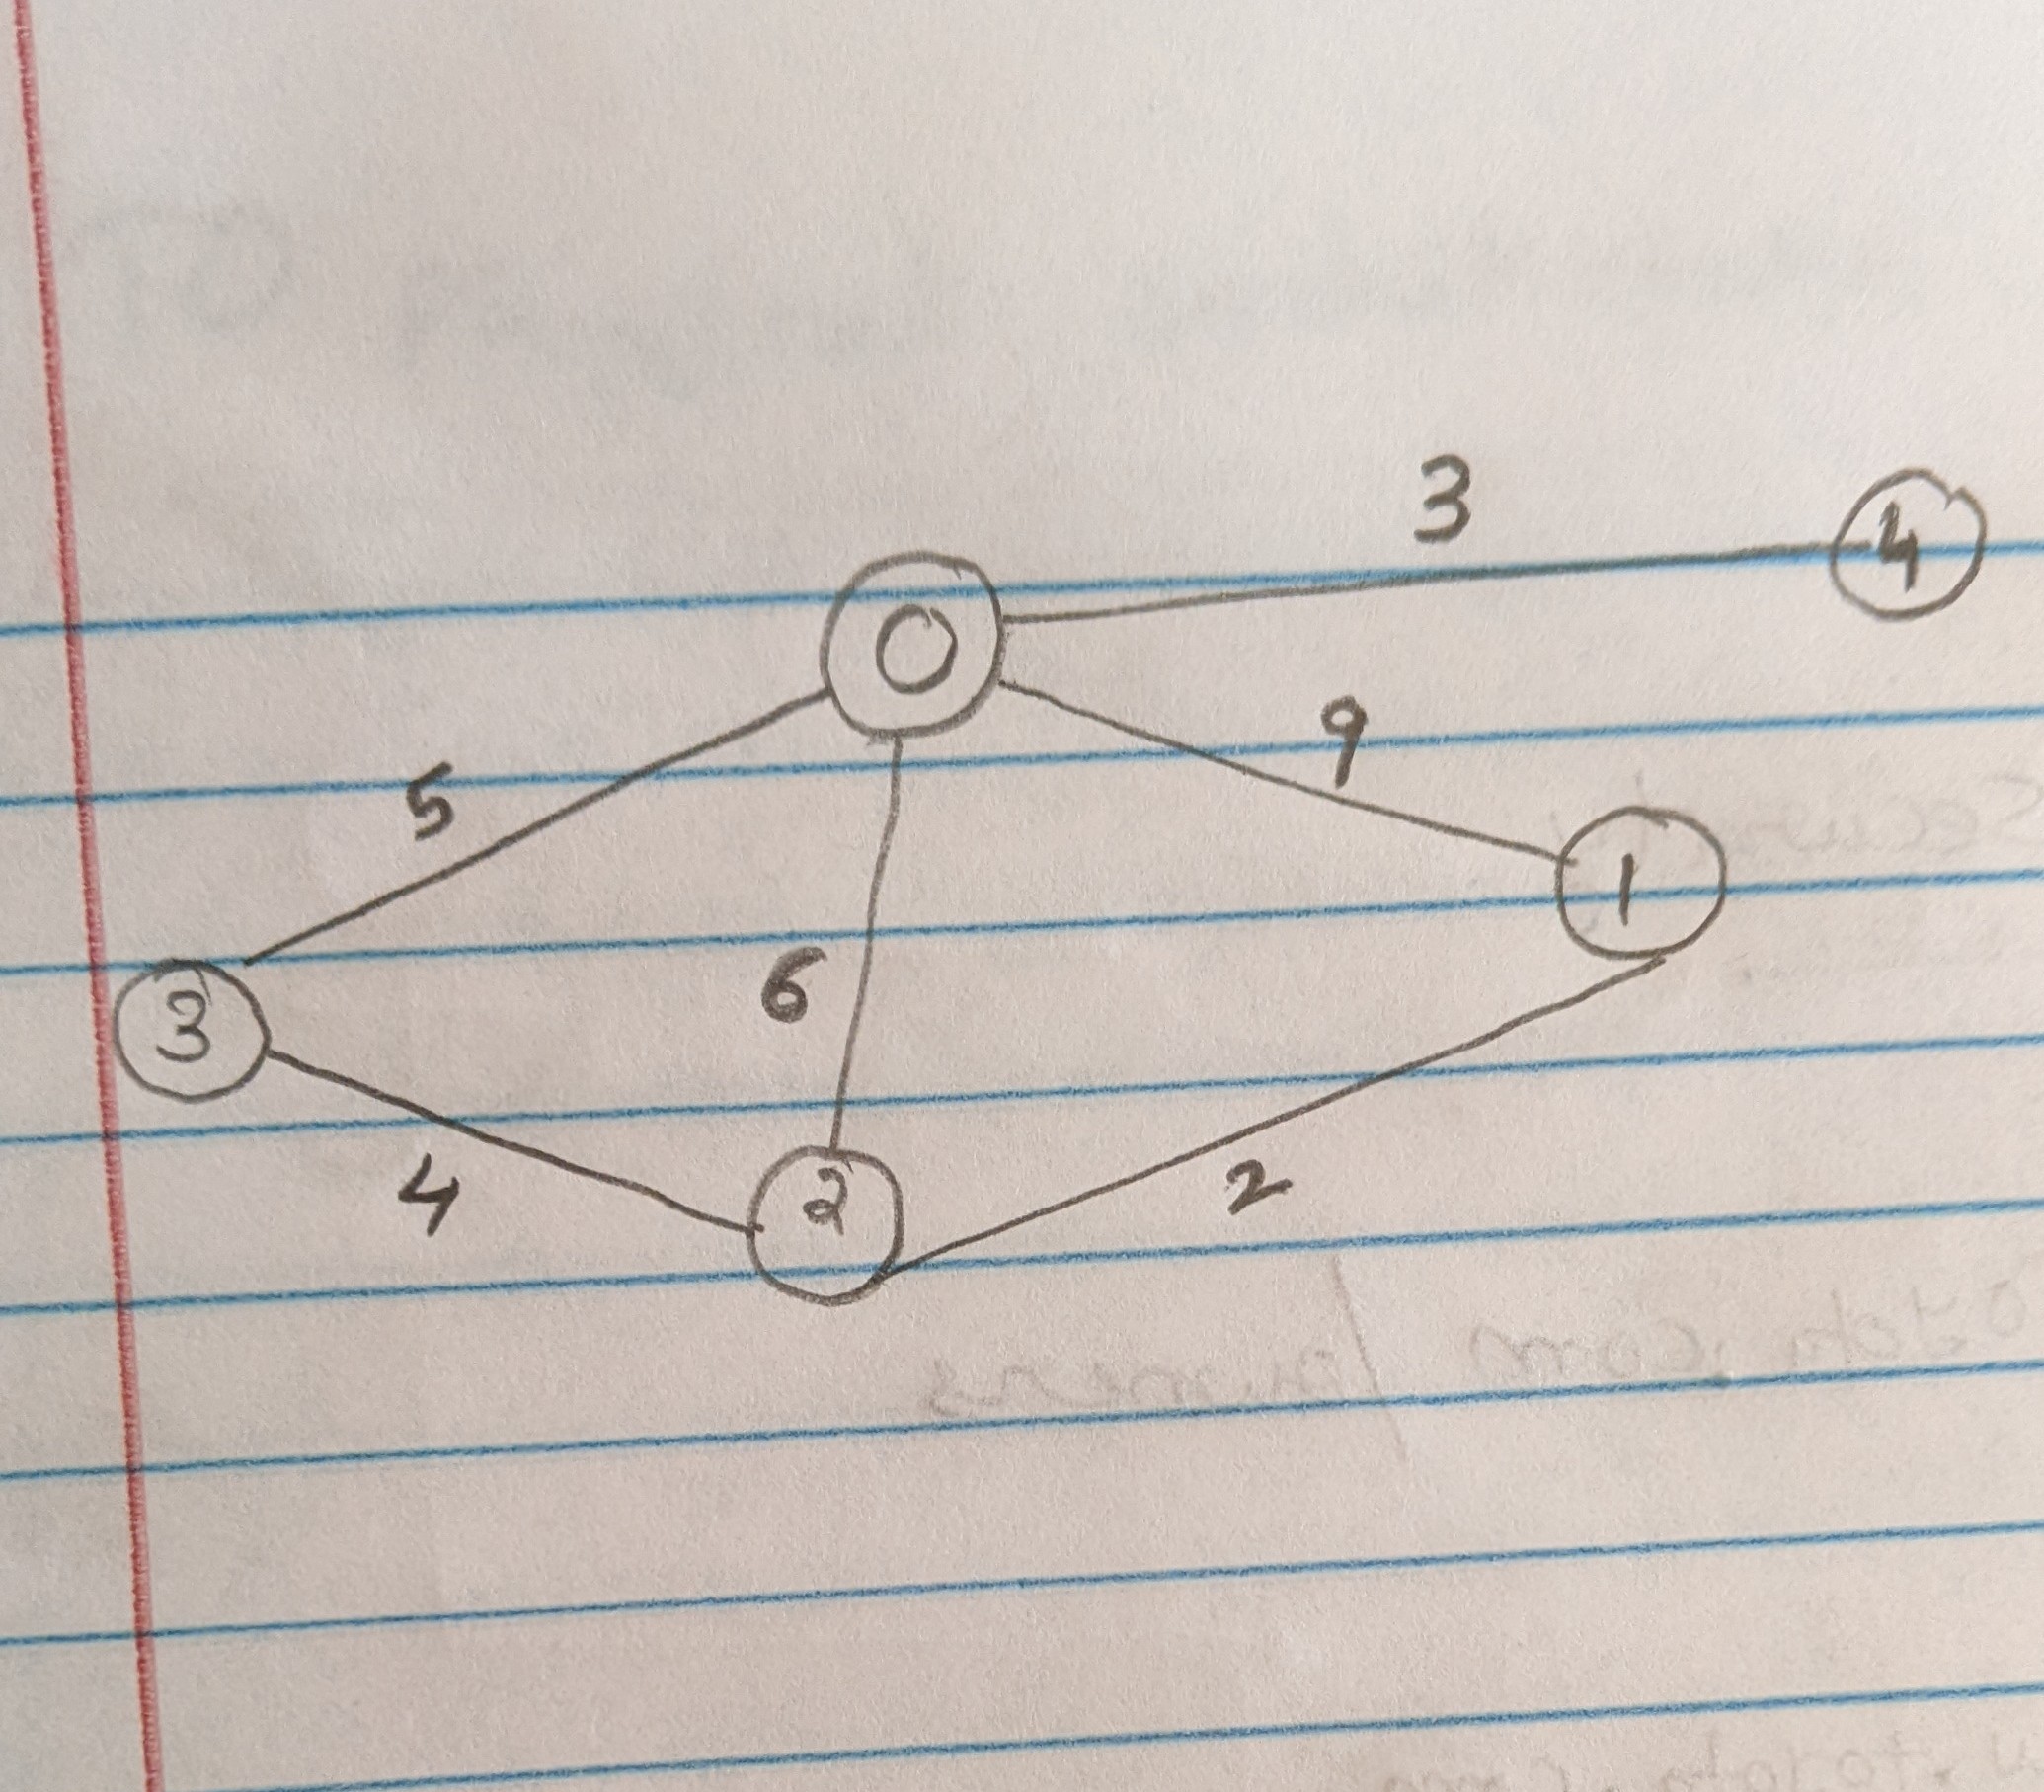 3
4
0
9
5
1
6
3
2
4
2